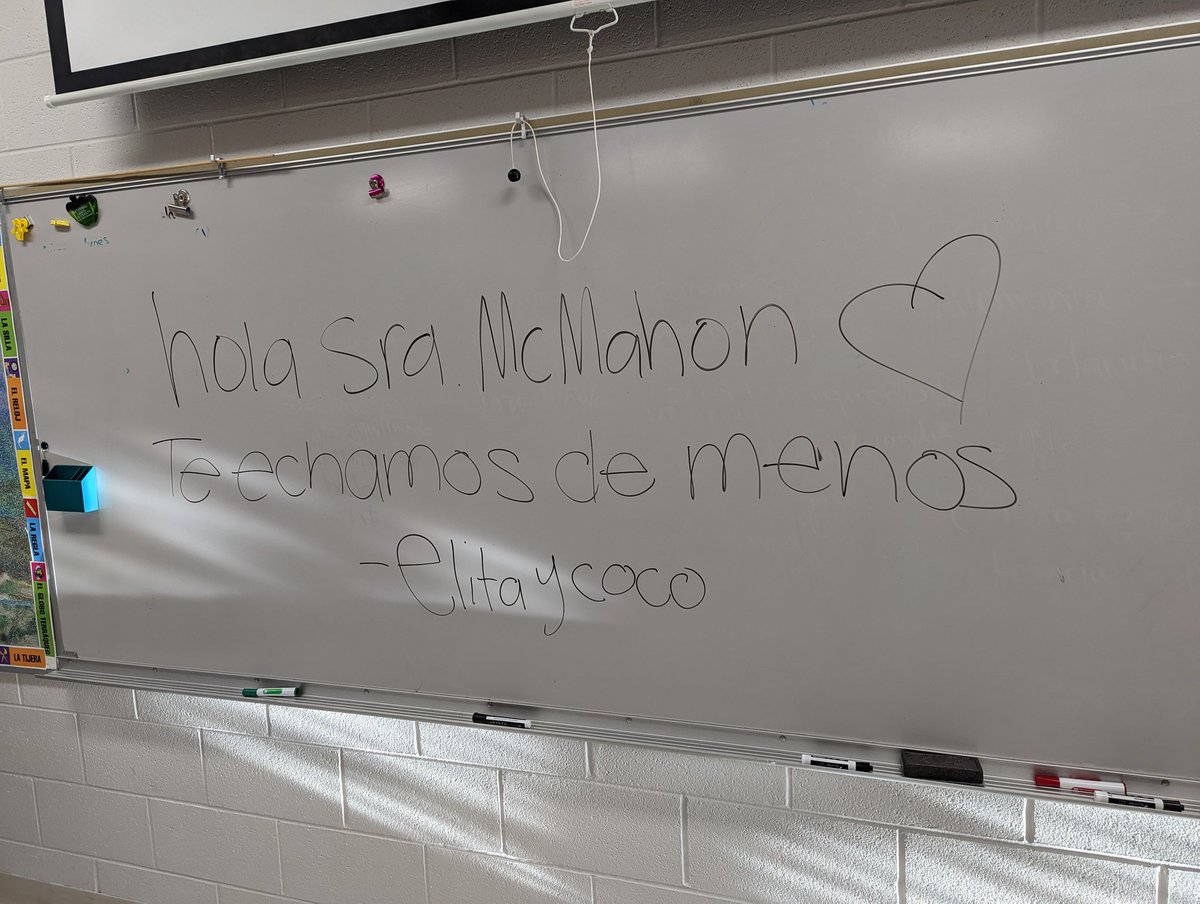 hola Sra. McMahon
Te echamos de menos
-elita y coco
LA SILLA
EL RELOJ
EL MAPA
LA REGLA
EL GLOBO TERRÁQUEO
LA TIJERA